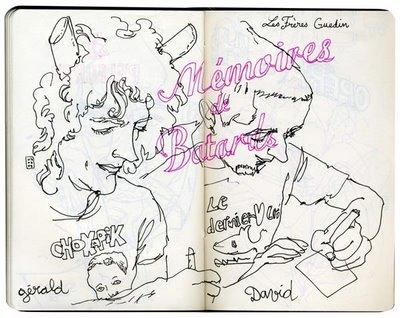 Les Frères Guedin
Mémoires
de
Batards
Le
dernier
CHOKAPIK
gérald
David